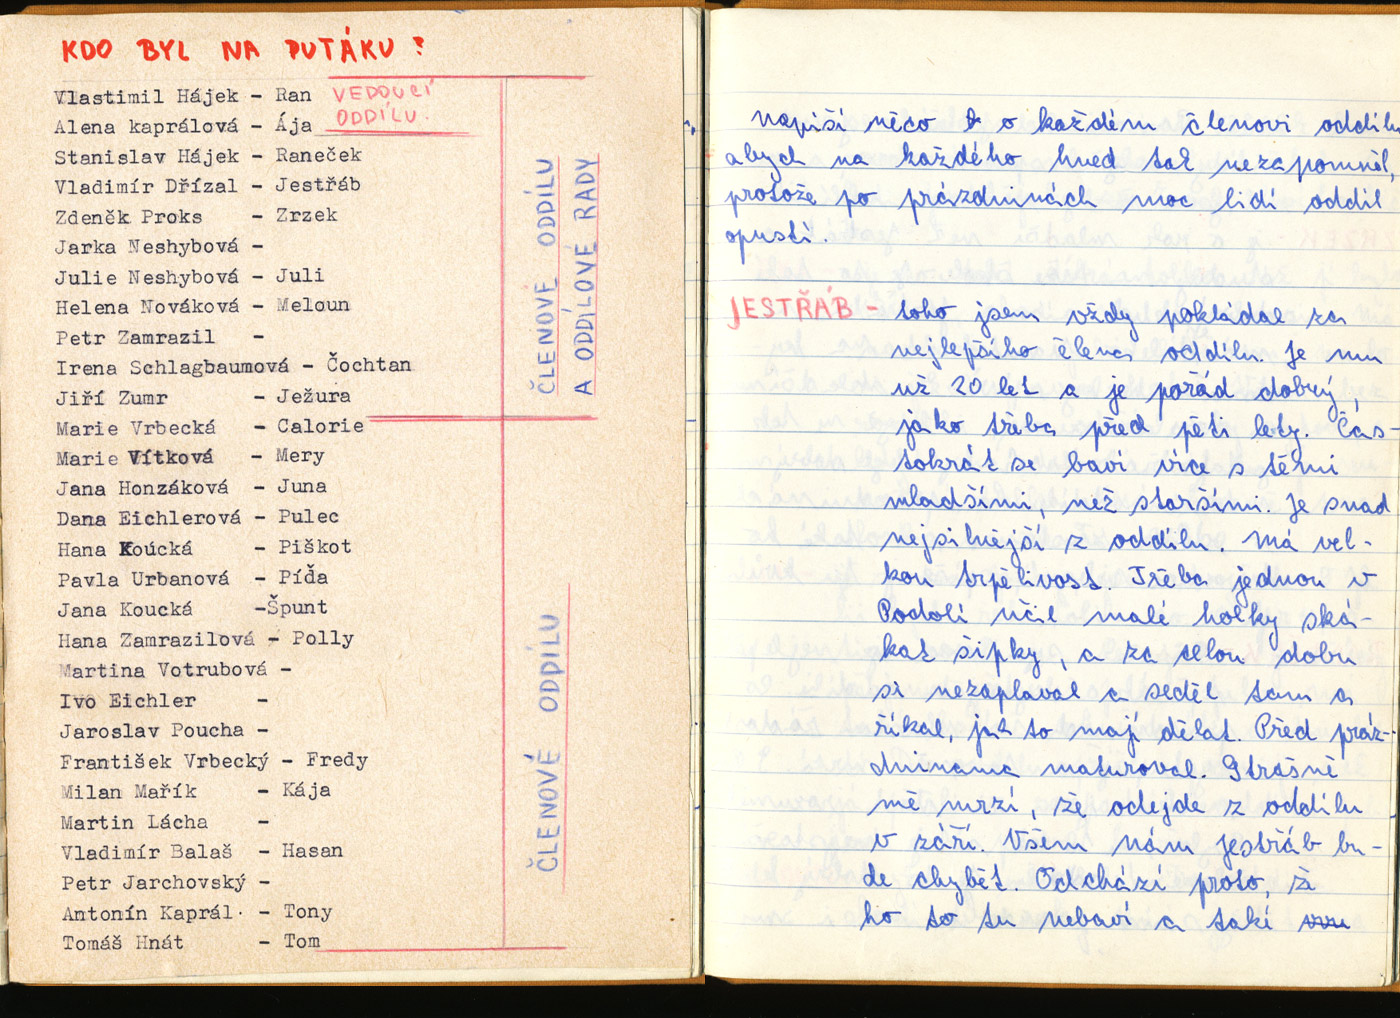 KDO BYL NA PUTÁKU?
Vlastimil Hájek - Ran
Alena kaprálová - Ája
VEDOUCÍ
ODDÍLU.
Stanislav Hájek - Raneček
Vladimír Dřízal - Jestřáb
Zdeněk Proks - Zrzek
Jarka Neshybová -
Julie Neshybová - Juli
Helena Nováková - Meloun
Petr Zamrazil -
Irena Schlagbaumová - Čochtan
Jiří Zumr - Ježura
ČLENOVÉ ODDÍLU
A ODDÍLOVÉ RADY
Marie Vrbecká - Calorie
Marie Vítková - Mery
Jana Honzáková - Juna
Dana Eichlerová - Pulec
Hana Koucká - Piškot
Pavla Urbanová - Píďa
Jana Koucká -Špunt
Hana Zamrazilová - Polly
Martina Votrubová -
Ivo Eichler -
Jaroslav Poucha -
František Vrbecký - Fredy
Milan Mařík - Kája
Martin Lácha -
Vladimír Balaš - Hasan
Petr Jarchovský -
Antonín Kaprál. - Tony
Tomáš Hnát - Tom
ČLENOVÉ ODDÍLU
napíši něco o každém členovi oddílu
abych na každého hned tak nezapomněl,
protože po prázdninách moc lidí oddíl
opustí.
JESTŘÁB - toho jsem vždy pokládal za
nejlepšího člena oddílu. Je mu
už 20 let a je pořád dobrý,
jako třeba před pěti lety. Čas-
tokrát se baví více s těmi
mladšími, než staršími. Je snad
nejsilnější z oddílu. Má vel-
kou trpělivost. Třeba jednou v
Podolí učil malé holky ská-
kat šipky, a za celou dobu
si nezaplaval a seděl tam a
říkal, jak to mají dělat. Před práz-
dninama maturoval. Strašně
mě mrzí, že odejde z oddílu
v září. Všem nám jestřáb bu-
de chybět. Odchází proto, že
ho to tu nebaví a také